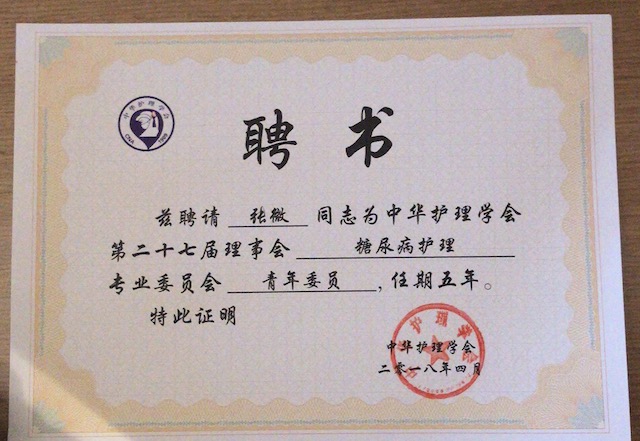 中华护理学会
CNA 1909
聘书
兹聘请 张微 同志为中华护理学会
第二十七届理事会 糖尿病护理
专业委员会 青年委员 ,任期五年。
特此证明
中华护理学会
二零一八年四月